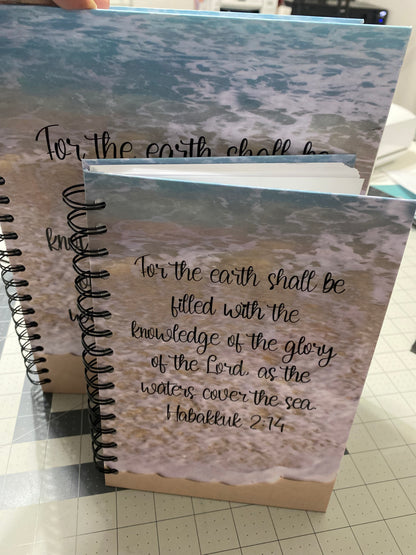 For the earth shall be
For the earth shall be
filled with the
knowledge of the glory
of the Lord, as the
waters cover the sea.
Habakkuk 2:14